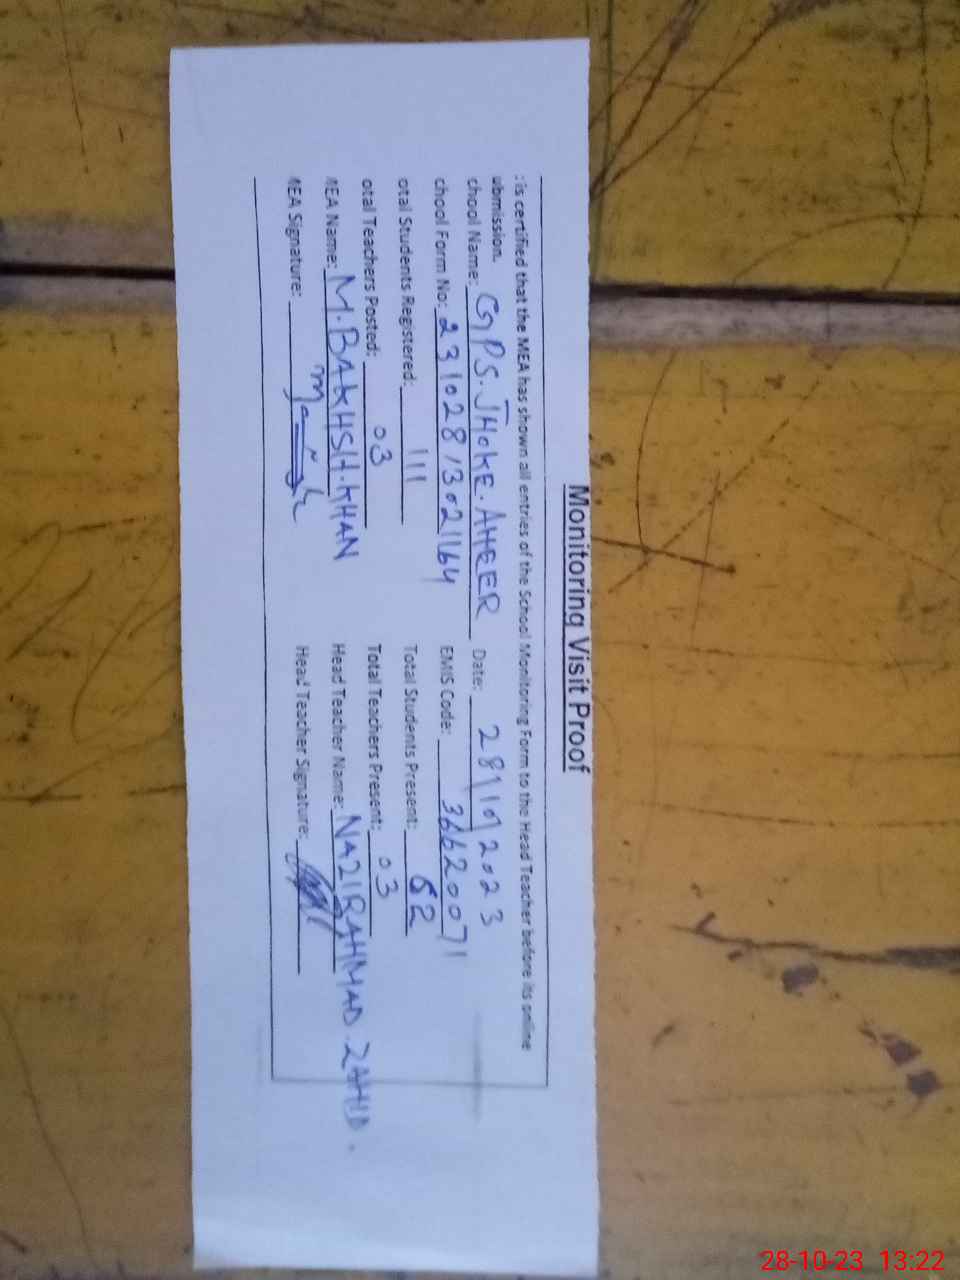 Monitoring Visit Proof
: is certified that the MEA has shown all entries of the School Monitoring Form to the Head Teacher before its online
ubmission.
chool Name: GPS. JHOKE. AHEER Date: 28/10/2023
chool Form No: 23102813021164 EMIS Code: 36620071
otal Students Registered: 111 Total Students Present: 62
otal Teachers Posted: 03 Total Teachers Present: 03
MEA Name: M. BAKHSH. KHAN Head Teacher Name: NAZIR AHMAD. ZAHID.
MEA Signature: Head Teacher Signature:
28-10-23 13:22